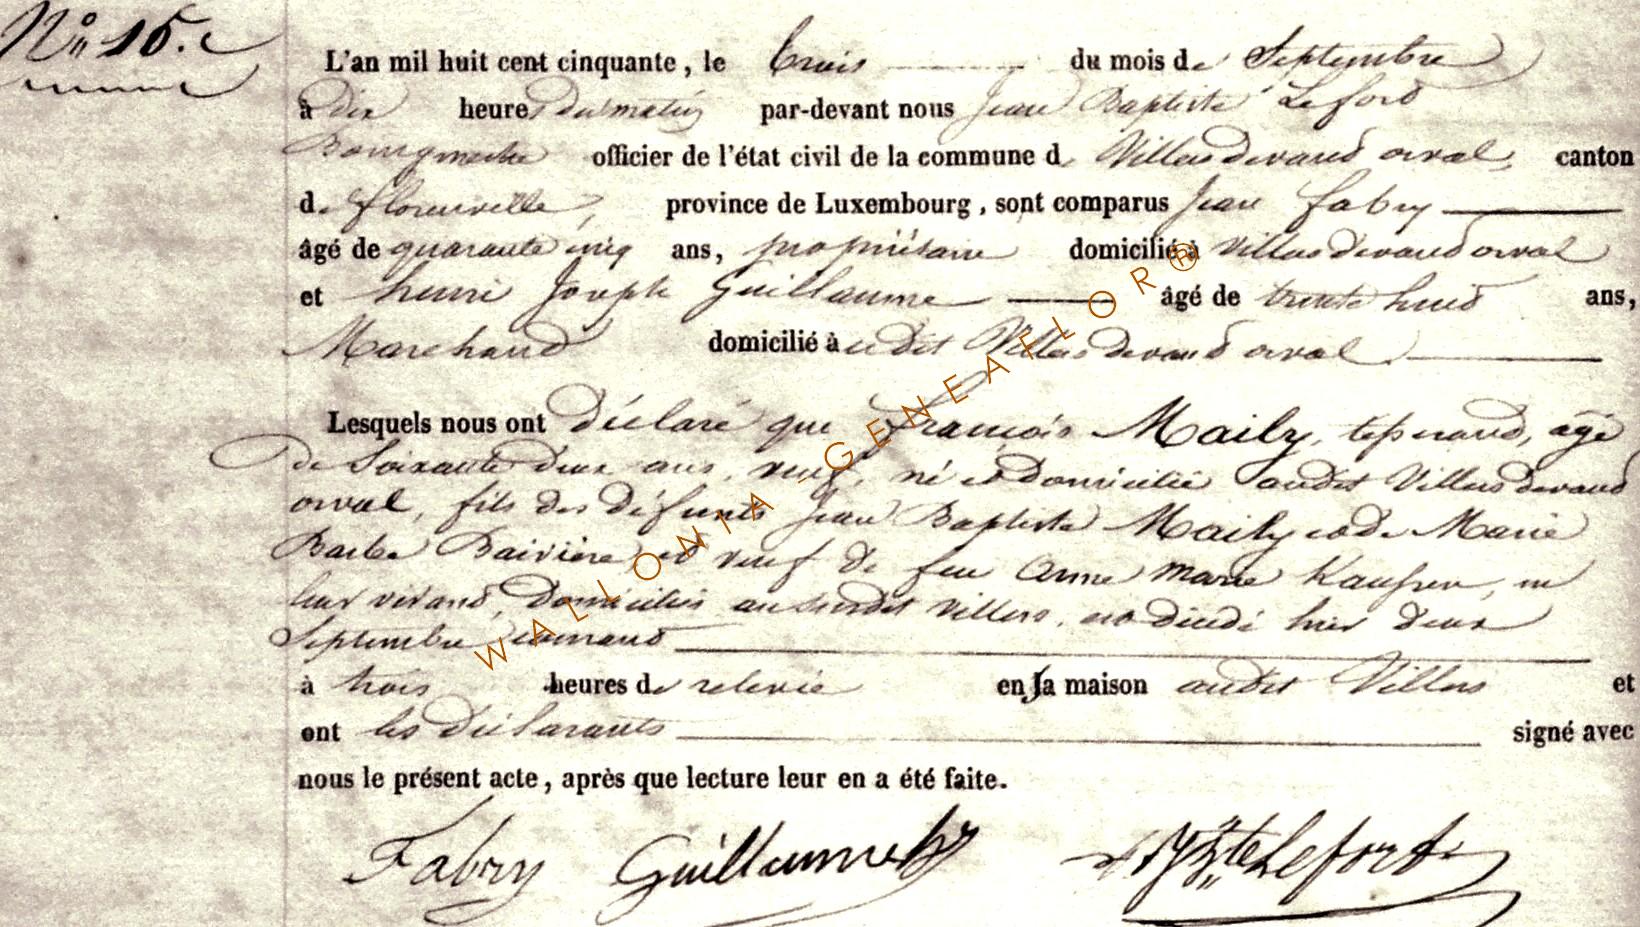 N° 15.
L'an mil huit cent cinquante, le trois du mois de Septembre
à dix heures du matin par-devant nous Jean Baptiste Lefort
Bourgmestre officier de l'état civil de la commune de Villers devant orval, canton
de florenville, province de Luxembourg, sont comparus Jean fabry
âgé de quarante cinq ans, propriétaire domicilié à Villers devant orval
et henri Joseph Guillaume âgé de trente huit ans,
Marchand domicilié audit Villers devant orval
Lesquels nous ont déclaré que françois Maily, tisserand, agé
de Soixante deux ans, veuf, né et domicilié audit Villers devant
orval, fils des défunts Jean Baptiste Maily et de Marie
Barbe Baivière et veuf de feu Anne Marie, en
leur vivant, domiciliés au susdit Villers, est décédé hier deux
Septembre courant
à trois heures de relevée en sa maison audit Villers et
ont les déclarants signé avec
nous le présent acte, après que lecture leur en a été faite.
Fabry Guillaume hj Lefort
WALLONIA-GENEAFLOR®